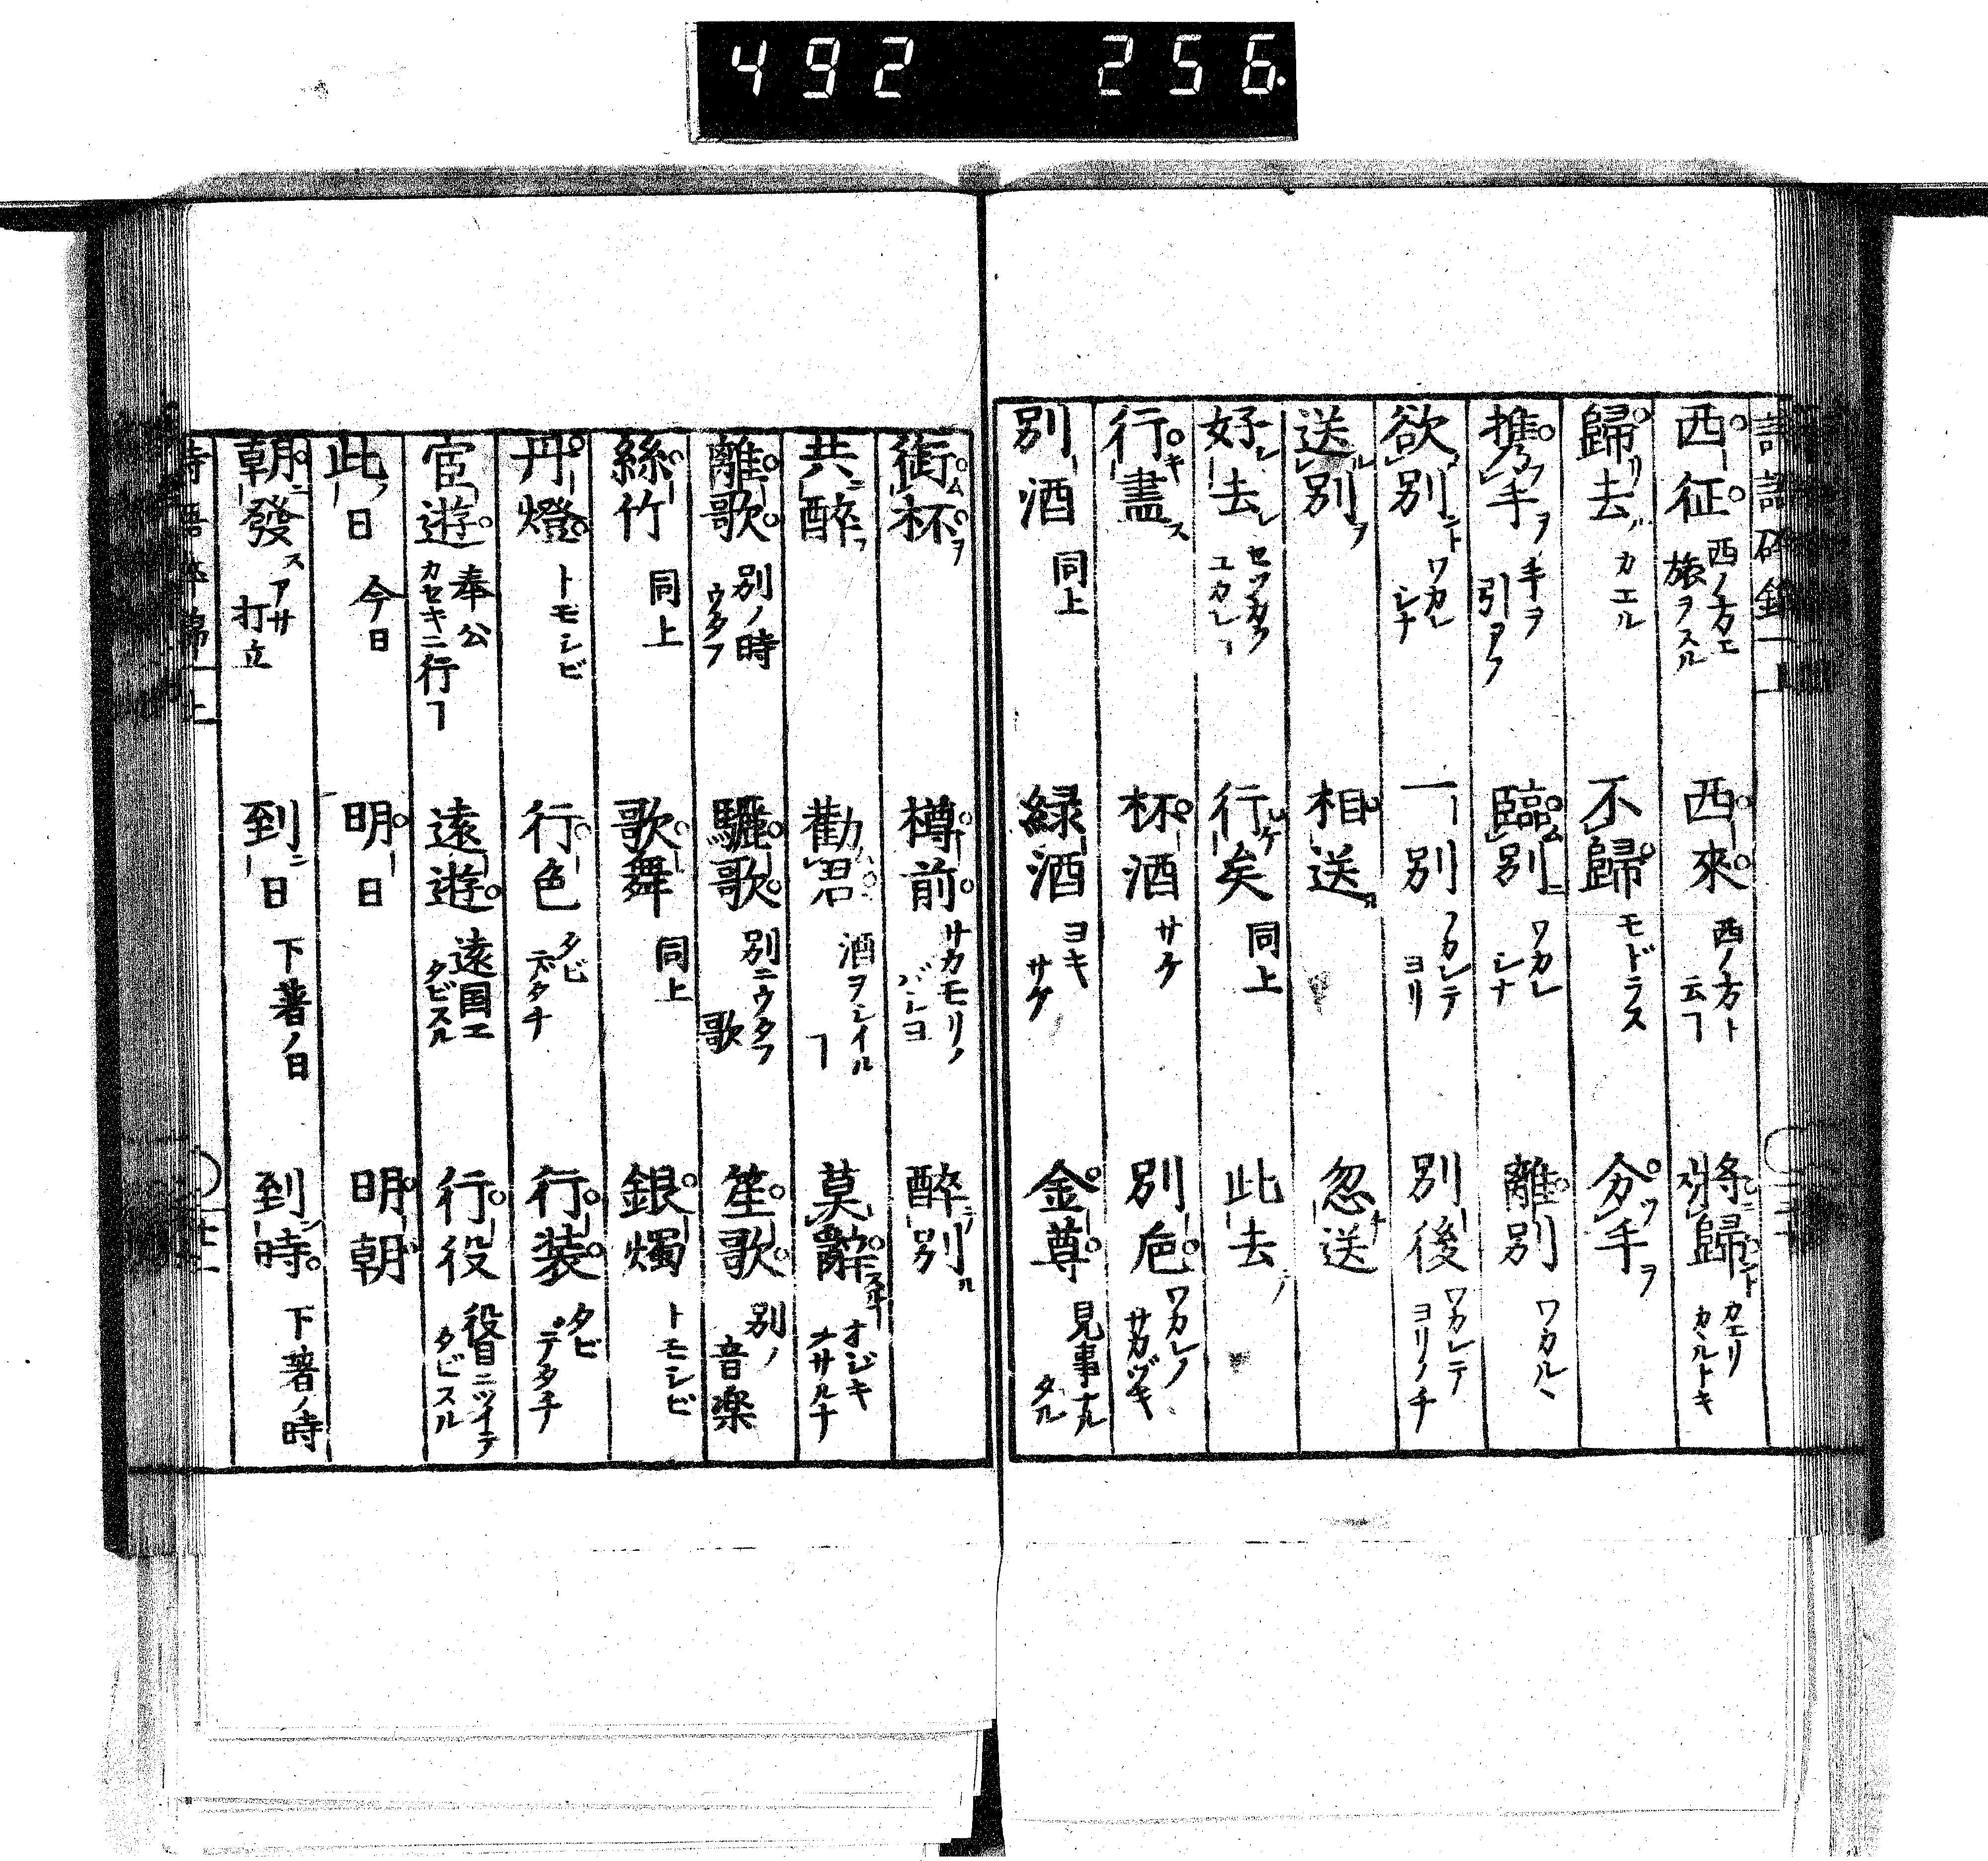 492 256
西征 西ノ方エ旅ヲスル 西來 西ノ方ト云フ 將歸 カエリカヽルトキ
歸去 カエル 不歸 モドラス 分手
携手 手ヲ引アフ 臨別 ワカレシナ 離別 ワカルヽ
欲別 ワカレシナ 一別 ワカレテヨリ 別後 ワカレテヨリノチ
送別 相送 忽送
好去 行矣 同上 此去
行盡 杯酒 サケ 別巵 ワカレノサカヅキ
別酒 同上 緑酒 ヨキサケ 金尊 見事ナルタル
銜杯 樽前 サカモリノバシヨ 醉別
共醉 勸君 酒ヲシイルヿ 莫辭 オジギナサルナ
離歌 別ノ時ウタフ 驪歌 別ニウタフ歌 笙歌 別ノ音楽
絲竹 同上 歌舞 同上 銀燭 トモシビ
丹燈 トモシビ 行色 タビデタチ 行装 タビデタチ
宦遊 奉公カセキニ行ヿ 遠遊 遠国エタビスル 行役 役目ニツイテタビスル
此日 今日 明日 明朝
朝發 アサ打立 到日 下著ノ日 到時 下著ノ時